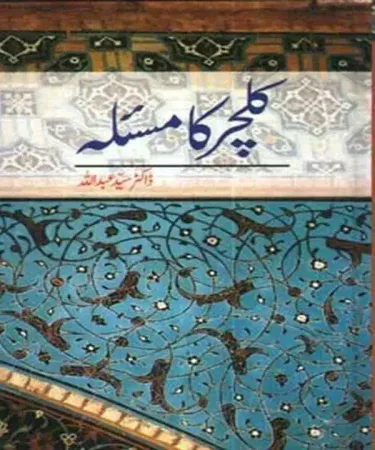 کلچر کا مسئلہ
ڈاکٹر سید عبداللہ